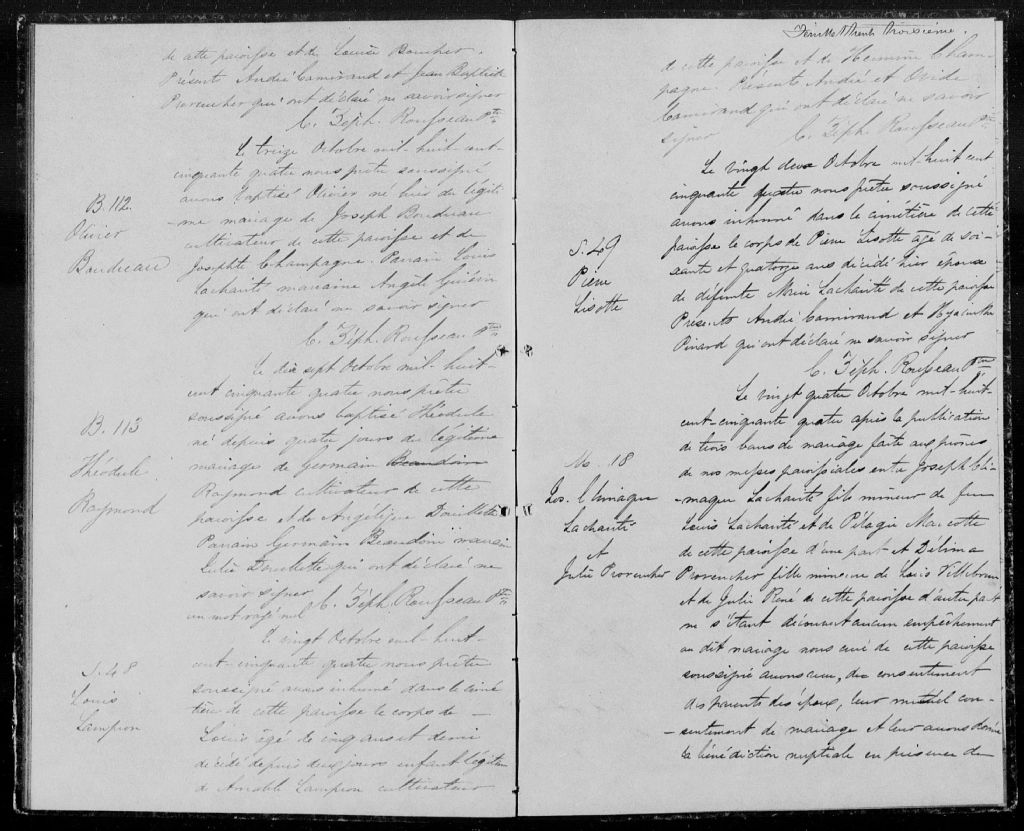 de cette paroisse et de Louise Boucher.
Présent André Camirand et Jean Baptiste
Provencher qui ont déclaré ne savoir signer
C. Zéph. Rousseau Ptre
B. 112.
Olivier
Boudreau
Le treize Octobre mil-huit-cent-
cinquante quatre nous prêtre soussigné
avons baptisé Olivier né hier du légiti
-me mariage de Joseph Boudreau
cultivateur de cette paroisse et de
Josephte Champagne. Parrain Louis
Lacharité marraine Angèle
qui ont déclaré ne savoir signer
C. Zéph. Rousseau Ptre
B. 113
Théodule
Raymond
Le dix sept Octobre mil-huit-
cent cinquante quatre nous prêtre
soussigné avons baptisé Théodule
né depuis quatre jours du légitime
mariage de Germain Beaudoin
Raymond cultivateur de cette
paroisse et de Angélique Doucette
Parrain Germain Beaudoin marraine
Julie Doucette qui ont déclaré ne
savoir signer C. Zéph. Rousseau Ptre
un mot rayé nul
S. 48
Louis
Lampron
Le vingt Octobre mil-huit-
cent-cinquante quatre nous prêtre
soussigné avons inhumé dans le cimé
tière de cette paroisse le corps de —
Louis âgé de cinq ans et demi
décédé depuis deux jours enfant légitime
de Amable Lampron cultivateur
Feuillet Trente Troisième.
de cette paroisse et de Hermine Cham-
pagne. Présents André et Ovide
Camirand qui ont déclaré ne savoir
signer C. Zéph Rousseau Ptre
S. 49
Pierre
Lisotte
Le vingt deux Octobre mil-huit cent
cinquante quatre nous prêtre soussigné
avons inhumé dans le cimétière de cette
paroisse le corps de Pierre Lisotte âgé de soi-
sante et quatorze ans décédé hier époux
de défunte Marie Lacharité de cette paroisse
Présents André Camirand et Hyacinthe
Pinard qui ont déclaré ne savoir signer
C. Zéph. Rousseau Ptre
M. 18
Jos. Climaque
Lacharité
et
Julie Provencher
Le vingt quatre Octobre mil-huit-
cent-cinquante quatre après la publication
de trois bans de mariage faite aux prônes
de nos messes paroissiales entre Joseph Cli-
-maque Lacharité fils mineur de feu
Louis Lacharité et de Pélagie Marcotte
de cette paroisse d'une part et Délima
Provencher fille mineure de Louis Villebrun
et de Julie René de cette paroisse d'autre part
ne s'étant découvert aucun empêchement
au dit mariage nous curé de cette paroisse
soussigné avons eu, du consentement
des parents des époux, leur mutuel con-
-sentement de mariage et leur avons donné
la bénédiction nuptiale en présence de